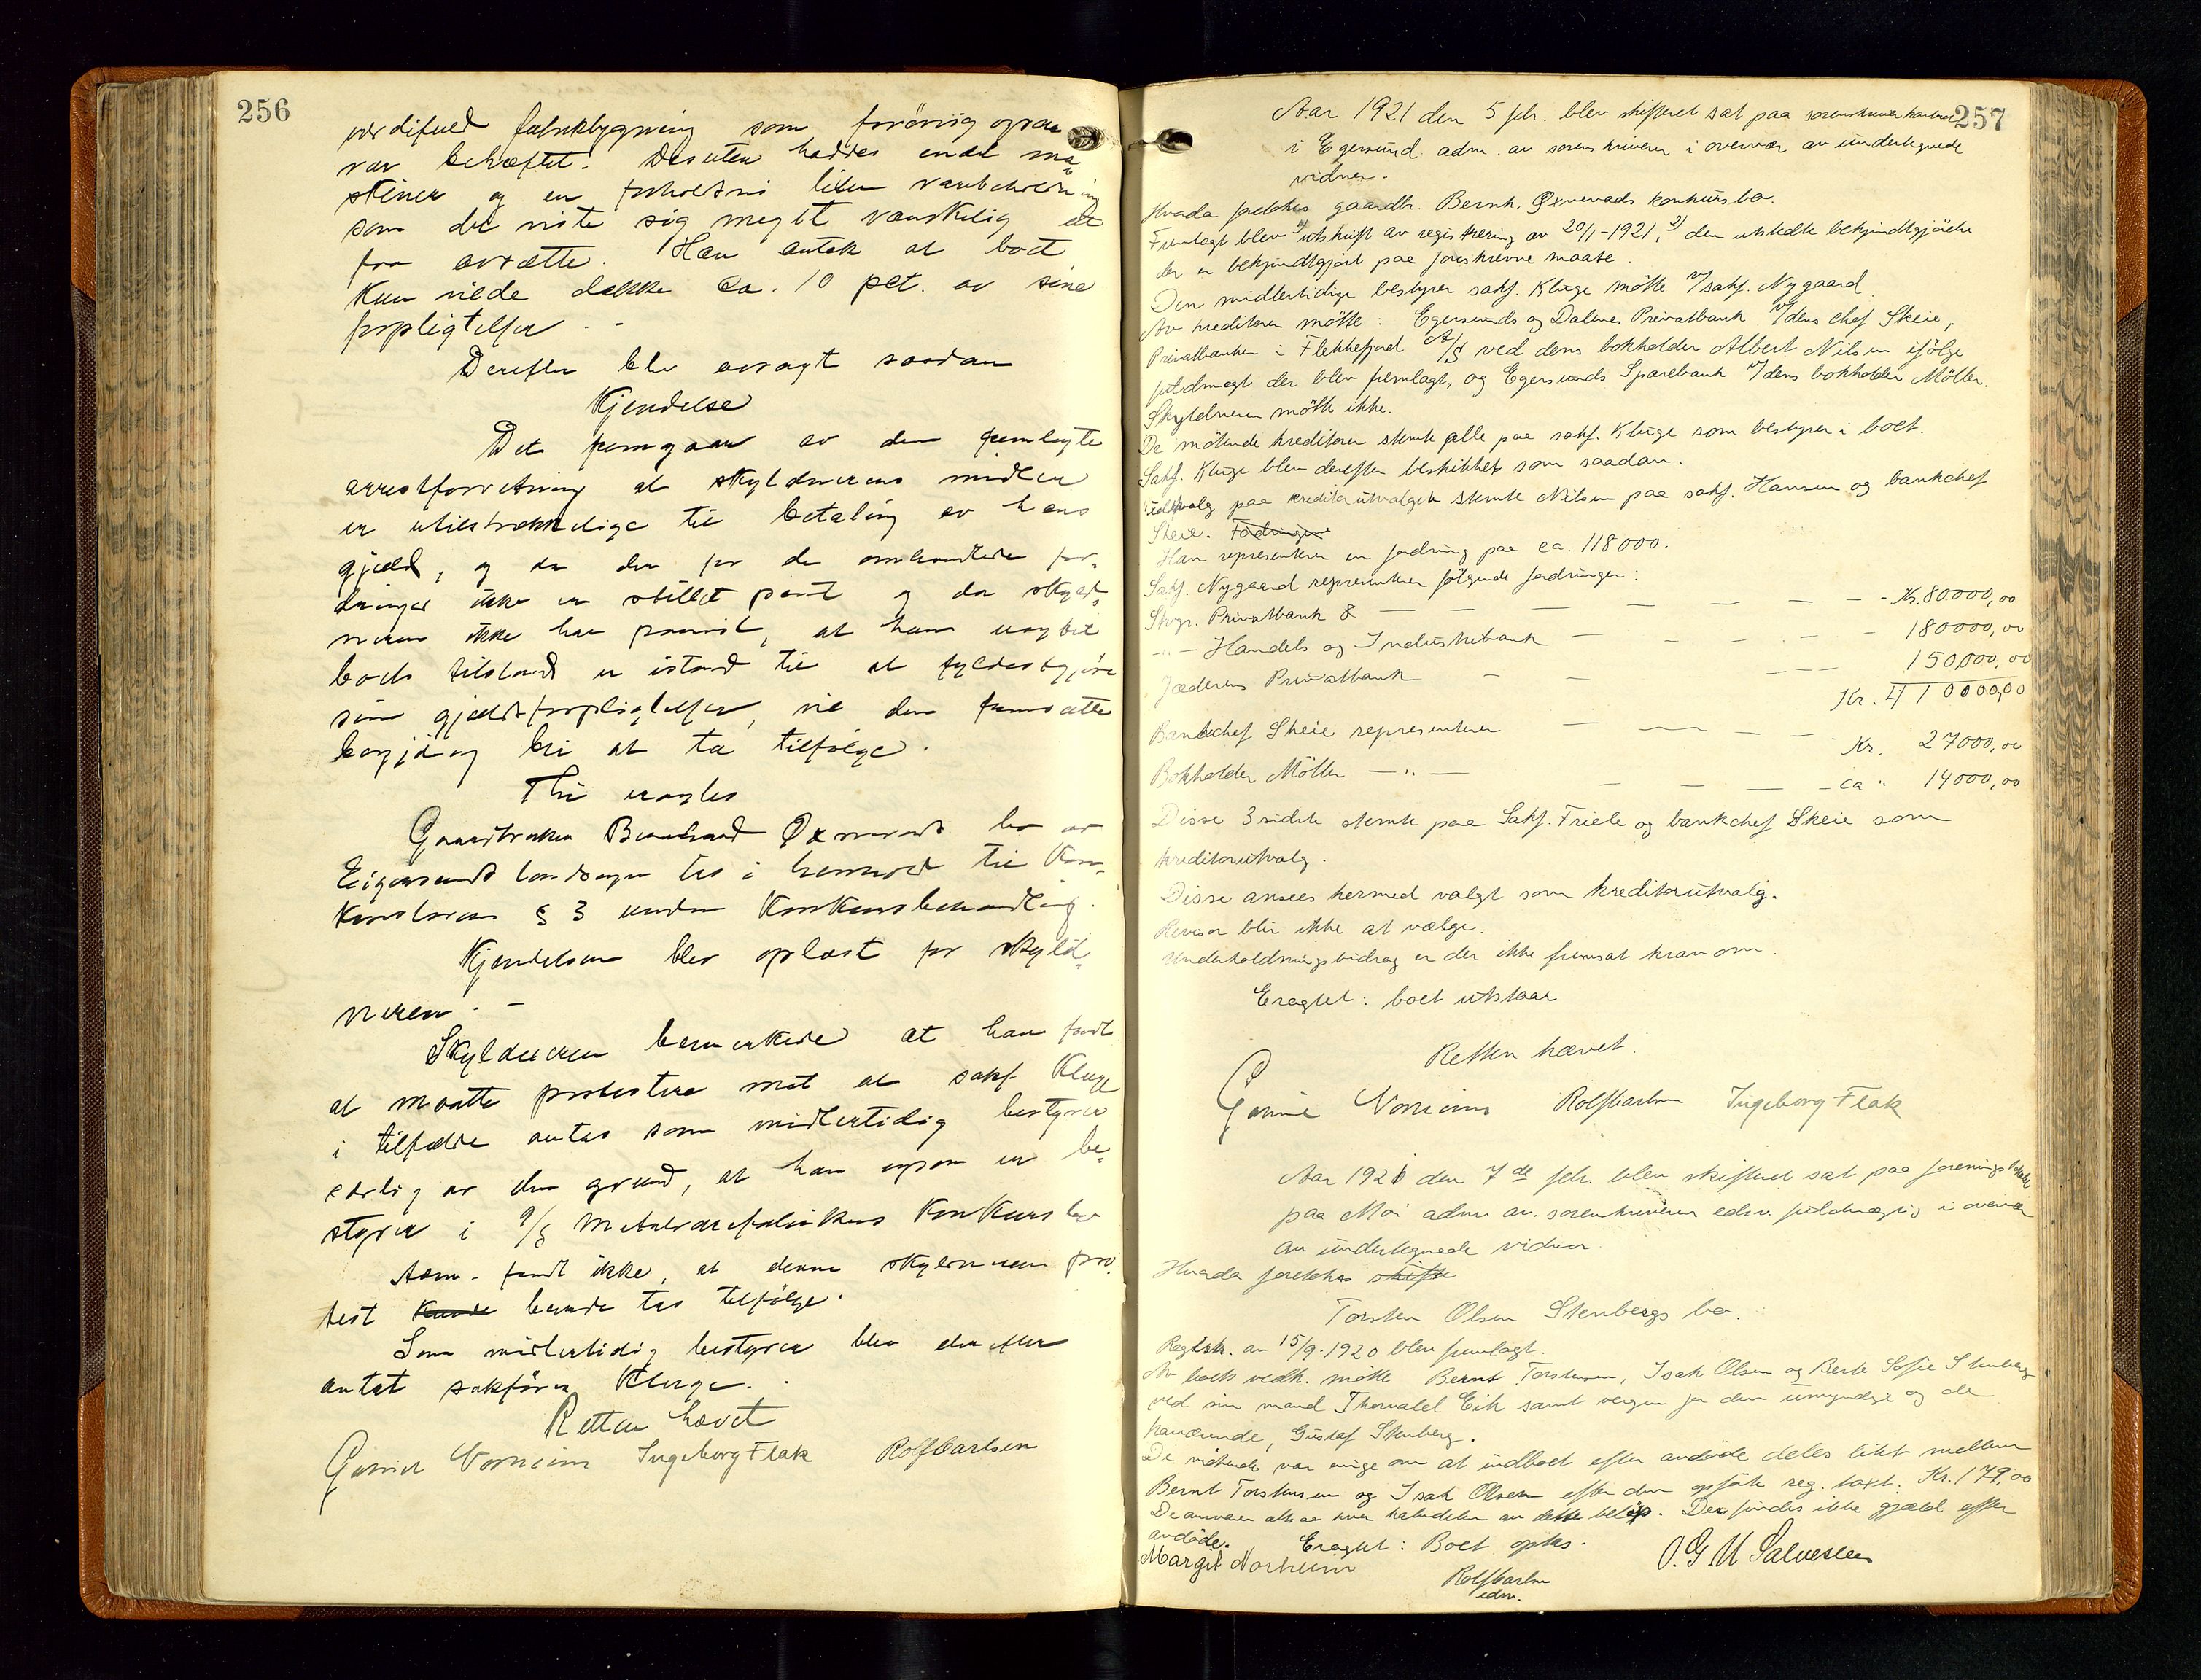 256
værdifuld fabrikbygning som forövrig ogsaa
var beheftet. Desuten haddes endel ma-
skiner og en forholdsvis liten varebeholdning
som det viste sig meget vanskelig at
faa avsætte. Han antok at boet
kun vilde dække ca. 10 pct. av sine
forpligtelser. -
Derefter blev avsagt saadan
Kjendelse
Det fremgaar av den fremlagte
arrestforretning at skyldnerens midler
er utilstrækkelige til betaling av hans
gjæld, og da der for de omhandlede for-
dringer ikke er stillet pant og da skyld-
neren ikke har paavist, at han uagtet
boets tilstand er istand til at fyldestgjøre
sine gjældsforpligtelser, vil den fremsatte
begjæring bli at ta tilfølge.
Thi eragtes
Gaardbruker Bernhard Øxnevads bo av
Eigersund landsogn tas i henhold til Kon-
kursloven § 3 under Konkursbehandling.
Kjendelsen blev oplæst for skyld-
neren. -
Skyldneren bemerkede at han fandt
at maatte protestere mot at sakf. Kluge
i tilfælde antas som midlertidig bestyrer
særlig av den grund, at han ogsaa er be-
styrer i A/S Metalvarefabrikens Konkursbo
Adm. fandt ikke, at denne skyldnerens pro-
test kunde burde tas tilfølge.
Som midlertidig bestyrer blev derefter
antat sakfører Kluge.
Retten hævet
Gunvor Norheim Ingeborg Flak Rolf Carlsen
257
Aar 1921 den 5 feb. blev skifteret sat paa sorenskriverkontoret
i Egersund adm. av sorenskriveren i overvær av undertegnede
vidner.
Hvada foretokes gaardbr. Bernh. Øxnevads konkursbo.
Fremlagt blev 1) utskrift av registrering av 20/1-1921, 2) den utstedte bekjendtgjörelse
der er bekjendtgjort paa foreskrevne maate.
Den midlertidige bestyrer sakf. Kluge mötte v/ sakf. Nygaard
Av kreditorer mötte: Egersunds og Dalenes Privatbank v/ dens chef Skeie,
Privatbanken i Flekkefjord A/S ved dens bokholder Albert Nilsen ifölge
fuldmagt der blev fremlagt, og Egersunds Sparebank v/ dens bokholder Möller.
Skyldneren mötte ikke.
De mötende kreditorer stemte alle paa sakf. Kluge som bestyrer i boet.
Sakf. Kluge blev derefter beskikket som saadan.
Ved valg paa kreditorutvalget stemte Nilsen paa sakf. Hansen og bankchef
Skeie. Fordringene
Han representerer en fordring paa ca. 118000.
Sakf. Nygaard representerer fölgende fordringer:
Stvgr. Privatbank 8 — — — — — — - Kr. 80000,00
-"- Handels og Industribank — — - - - 180000,00
Jæderens Privatbank - - - — — 150,000,00
Kr. 410000,00
Bankchef Skeie representerer — — — - - Kr. 27000,00
Bokholder Möller — " — — — — — - ca " 14000,00
Disse 3 sidste stemte paa Sakf. Friele og bankchef Skeie som
kreditorutvalg.
Disse ansees hermed valgt som kreditorutvalg.
Revisor blir ikke at vælge.
Underholdningsbidrag er der ikke fremsat krav om.
Eragtet: boet utstaar
Retten hævet.
Gunvor Norheim Rolf Carlsen Ingeborg Flak
Aar 1921 den 7de feb. blev skifteret sat paa foreningslokalet
paa Moi adm. av. sorenskriverens edsv. fuldmægtig i overvær
av undertegnede vidner.
Hvada foretokes skifte
Torsten Olsen Stenbergs bo.
Registr. av 15/9-1920 blev fremlagt.
Av boets vedk. mötte Bernt Torstensen, Isak Olsen og Berte Sofie Stenberg
ved sin mand Thorvald Eik samt vergen for den umyndige og de
fraværende, Gustaf Stenberg.
De mötende var enige om at indboet efter avdöde deles likt mellem
Bernt Torstensen og Isak Olsen efter den opsatte reg. taxt. Kr. 179,00
De ansvarer altsaa hver halvdelen av dette belöp. Der findes ikke gjæld efter
avdöde. Eragtet: Boet optas.
Margit Norheim Rolf Carlsen O. G. M. Salvesen
edsv.